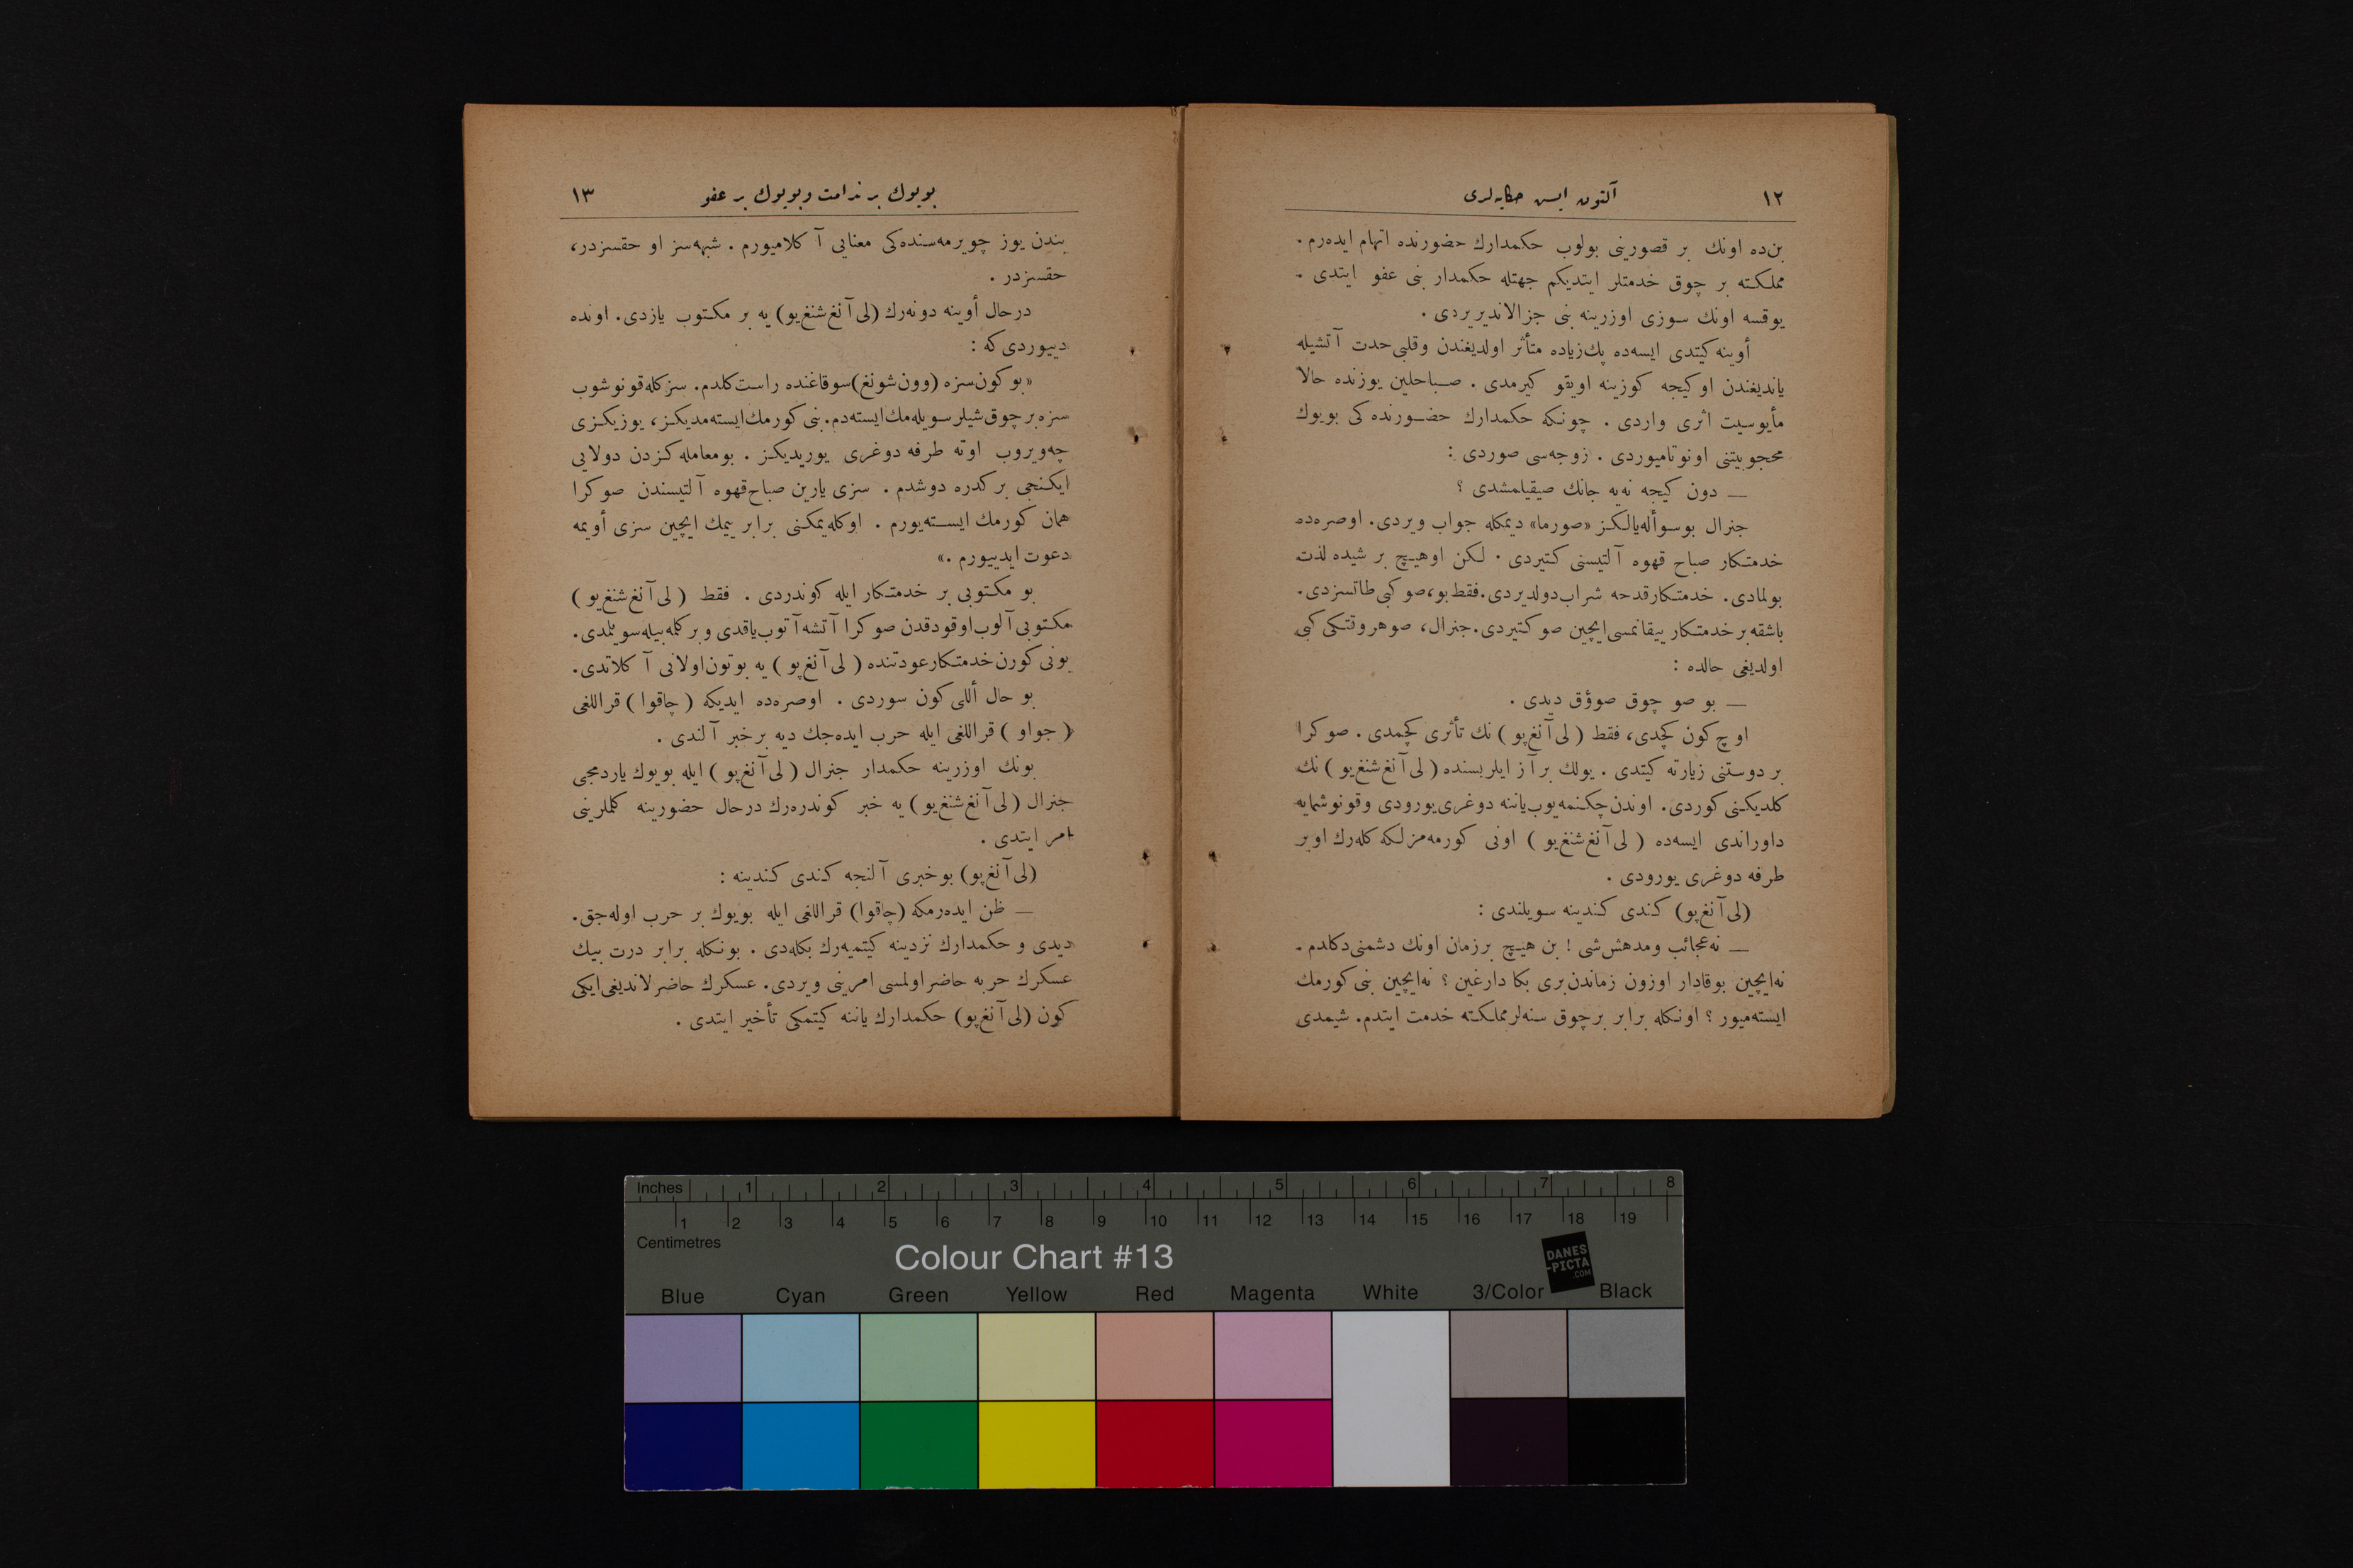 ١٢
آلتون ايس حكايه‌لرى
بن‌ده اونك بر قصورينى بولوب حكمدارك حضورنده اتهام ايده‌رم .
مملكته بر چوق خدمتلر ايتديكم جهتله حكمدار بنى عفو ايتدى .
يوقسه اونك سوزى اوزرينه بنى جزالانديريردى .
أوينه كيتدى ايسه‌ده پك زياده متأثر اولديغندن وقلبى حدت آتشيله
يانديغندن او كيجه كوزينه اويقو كيرمدى . صباحلين يوزنده حالا
مأيوسيت اثرى واردى . چونكه حكمدارك حضورنده كى بويوك
محجوبيتنى اونوتاميوردى . زوجه‌سى صوردى :
— دون كيجه نه‌يه جانك صيقيلمشدى ؟
جنرال بو سوأله يالكز «صورما» ديمكله جواب ويردى. اوصره‌ده
خدمتكار صباح قهوه آلتيسنى كتيردى . لكن او هيچ بر شيده لذت
بولمادى. خدمتكار قدحه شراب دولديردى. فقط بو، صو كبى طاتسزدى.
باشقه بر خدمتكار ييقانمسى ايچين صو كتيردى. جنرال، صو هر وقتكى كبى
اولديغى حالده :
— بو صو چوق صوؤق ديدى .
اوچ كون كچدى، فقط ( لى آنغ‌پو ) نك تأثرى كچمدى . صوكرا
بر دوستنى زيارته كيتدى . يولك بر آز ايلريسنده ( لى آنغ شنغ يو ) نك
كلديكنى كوردى. اوندن چكنمه‌يوب ياننه دوغرى يورودى وقونوشمايه
داوراندى ايسه‌ده ( لى آنغ شنغ يو ) اونى كورمه‌مزلكه كله‌رك اوبر
طرفه دوغرى يورودى .
(لى آنغ‌پو) كندى كندينه سويلندى :
— نه عجائب ومدهش شى ! بن هيچ بر زمان اونك دشمنى دكلدم .
نه‌ايچين بوقادار اوزون زماندن برى بكا دارغين ؟ نه‌ايچين بنى كورمك
ايسته‌ميور ؟ اونكله برابر بر چوق سنه‌لر مملكته خدمت ايتدم. شيمدى
بويوك بر ندامت وبويوك بر عفو
١٣
بندن يوز چويرمه‌سنده‌كى معنايى آ كلاميورم . شبهه‌سز او حقسزدر،
حقسزدر .
درحال أوينه دونه‌رك (لى آنغ شنغ يو) يه بر مكتوب يازدى. اونده
دييوردى كه :
«بو كون سزه (وون شونغ) سوقاغنده راست كلدم. سزكله قونوشوب
سزه بر چوق شيلر سويله‌مك ايسته‌دم. بنى كورمك ايسته‌مديكز، يوزيكزى
چه‌ويروب اوته طرفه دوغرى يوريديكز . بو معامله‌كزدن دولايى
ايكنجى بر كدره دوشدم . سزى يارين صباح قهوه آلتيسندن صوكرا
همان كورمك ايسته‌يورم . اوكله يمكنى برابر ييمك ايچين سزى أويمه
دعوت ايدييورم .»
بو مكتوبى بر خدمتكار ايله كوندردى . فقط ( لى آنغ شنغ يو )
مكتوبى آلوب اوقودقدن صوكرا آتشه آتوب ياقدى و بر كلمه بيله سويلمدى.
بونى كورن خدمتكار عودتنده ( لى آنغ پو ) يه بوتون اولانى آ كلاتدى.
بو حال أللى كون سوردى . اوصره‌ده ايديكه ( چاقوا ) قراللغى
( جواو ) قراللغى ايله حرب ايده‌جك ديه بر خبر آلندى .
بونك اوزرينه حكمدار جنرال ( لى آنغ‌پو ) ايله بويوك ياردمجى
جنرال ( لى آنغ شنغ يو ) يه خبر كوندره‌رك درحال حضورينه كلملرينى
امر ايتدى .
(لى آنغ‌پو) بو خبرى آلنجه كندى كندينه :
— ظن ايده‌رمكه (چاقوا) قراللغى ايله بويوك بر حرب اوله‌جق.
ديدى و حكمدارك نزدينه كيتميه‌رك بكله‌دى . بونكله برابر درت بيك
عسكرك حربه حاضر اولمسى امرينى ويردى. عسكرك حاضرلانديغى ايكى
كون (لى آنغ‌پو) حكمدارك ياننه كيتمكى تأخير ايتدى .
Inches 1 2 3 4 5 6 7 8
1 2 3 4 5 6 7 8 9 10 11 12 13 14 15 16 17 18 19
Centimetres
Colour Chart #13
DANES
-PICTA
.COM
Blue Cyan Green Yellow Red Magenta White 3/Color Black